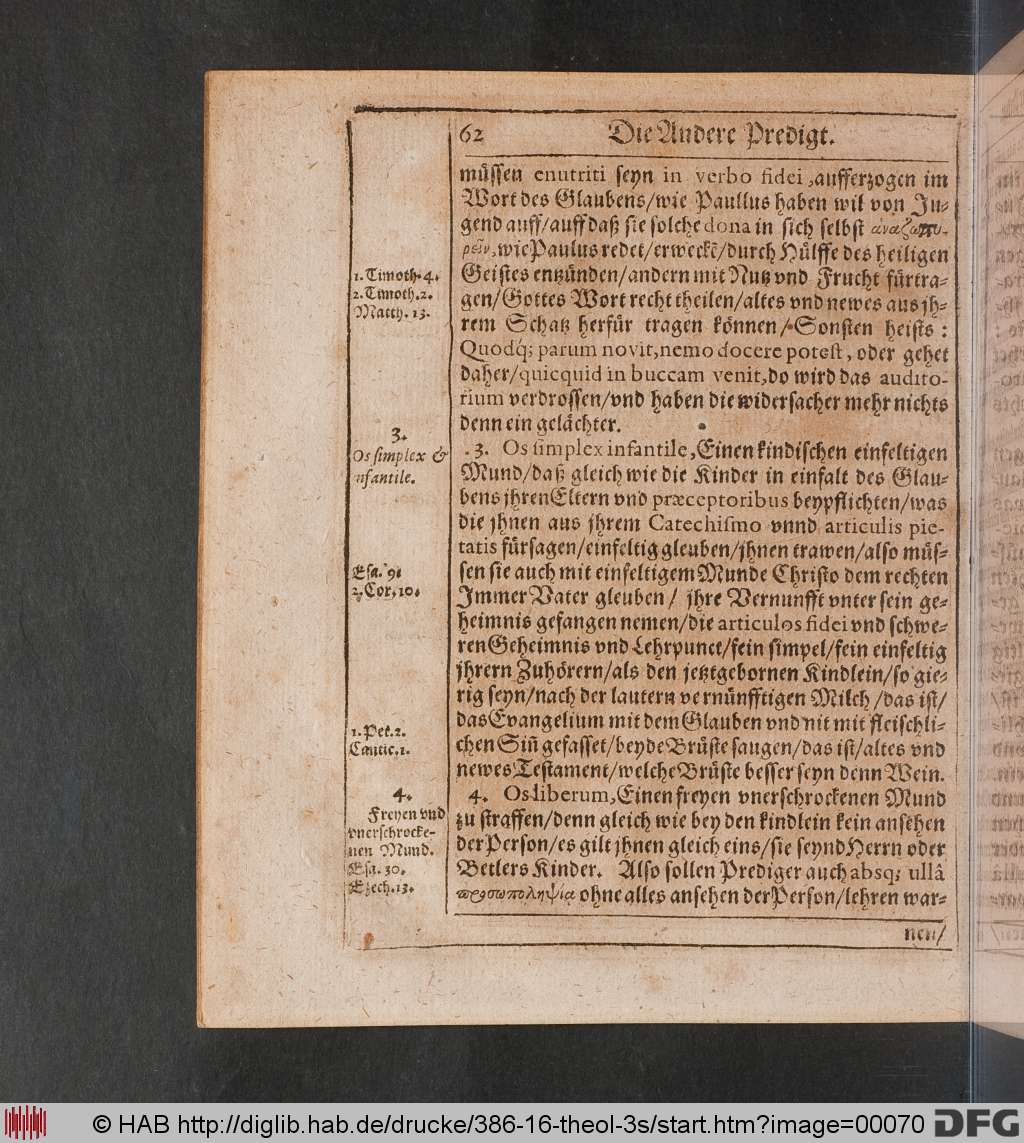 62 Die Andere Predigt.
müssen enutriti seyn in verbo fidei, aufferzogen im
Wort des Glaubens/wie Paullus haben wil von Ju-
gend auff/auff daß sie solche dona in sich selbst ἀναζωπυ-
ρεῖν, wie Paulus redet/erweckē/durch Hülffe des heiligen
1. Timoth. 4.
2. Timoth. 2.
Matth. 13.
Geistes entzünden/andern mit Nutz vnd Frucht fürtra-
gen/Gottes Wort recht theilen/altes vnd newes aus jh-
rem Schatz herfür tragen können/Sonsten heists:
Quodq́; parum novit, nemo docere potest, oder gehet
daher/quicquid in buccam venit, do wird das audito-
rium verdrossen/vnd haben die widersacher mehr nichts
denn ein gelächter.
3.
Os simplex &
nfantile.
3. Os simplex infantile, Einen kindischen einfeltigen
Mund/daß gleich wie die Kinder in einfalt des Glau-
bens jhren Eltern vnd præceptoribus beypflichten/was
die jhnen aus jhrem Catechismo vnnd articulis pie-
tatis fürsagen/einfeltig gleuben/jhnen trawen/also müs-
Esa. 9.
2. Cor. 10.
sen sie auch mit einfeltigem Munde Christo dem rechten
Immer Vater gleuben/ jhre Vernunfft vnter sein ge-
heimnis gefangen nemen/die articulos fidei vnd schwe-
ren Geheimnis vnd Lehrpunct/fein simpel/fein einfeltig
jhrern Zuhörern/als den jetztgebornen Kindlein/so gie-
rig seyn/nach der lautern vernünfftigen Milch/das ist/
das Evangelium mit dem Glauben vnd nit mit fleischli-
1. Pet. 2.
Cantic. 1.
chen Siñ gefasset/beyde Brüste saugen/das ist/altes vnd
newes Testament/welche Brüste besser seyn denn Wein.
4.
Freyen vnd
vnerschrocke-
nen Mund.
Esa. 30.
Ezech. 13.
4. Os liberum, Einen freyen vnerschrockenen Mund
zu straffen/denn gleich wie bey den kindlein kein ansehen
der Person/es gilt jhnen gleich eins/sie seynd Herrn oder
Betlers Kinder. Also sollen Prediger auch absq; ullâ
προσωποληψίᾳ ohne alles ansehen der Person/lehren war-
nen/
© HAB http://diglib.hab.de/drucke/386-16-theol-3s/start.htm?image=00070
DFG